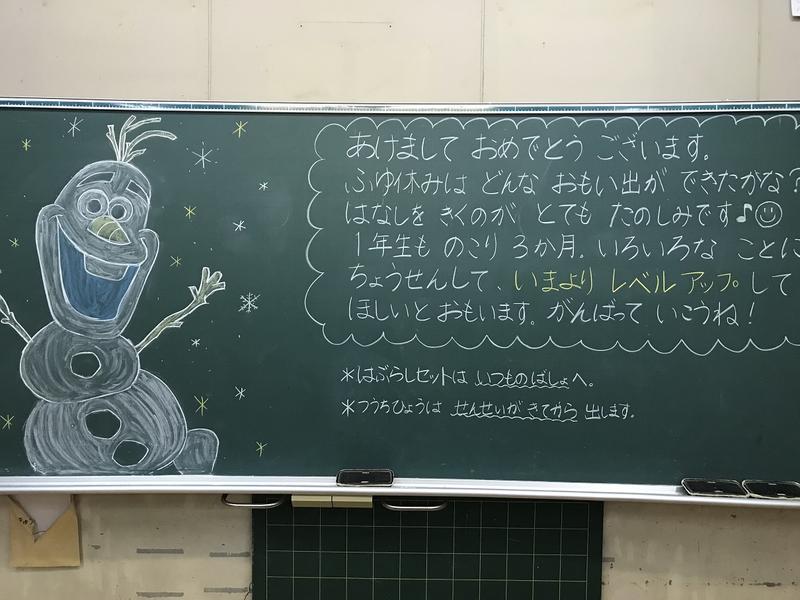 あけまして おめでとう ございます。
ふゆ休みは どんな おもい出が できたかな?
はなしを きくのが とても たのしみです♪☺
1年生も のこり 3か月。いろいろな ことに
ちょうせんして、いまより レベルアップ して
ほしいと おもいます。がんばって いこうね!
*はぶらしセットは いつものばしょへ。
*つうちひょうは せんせいが きてから 出します。